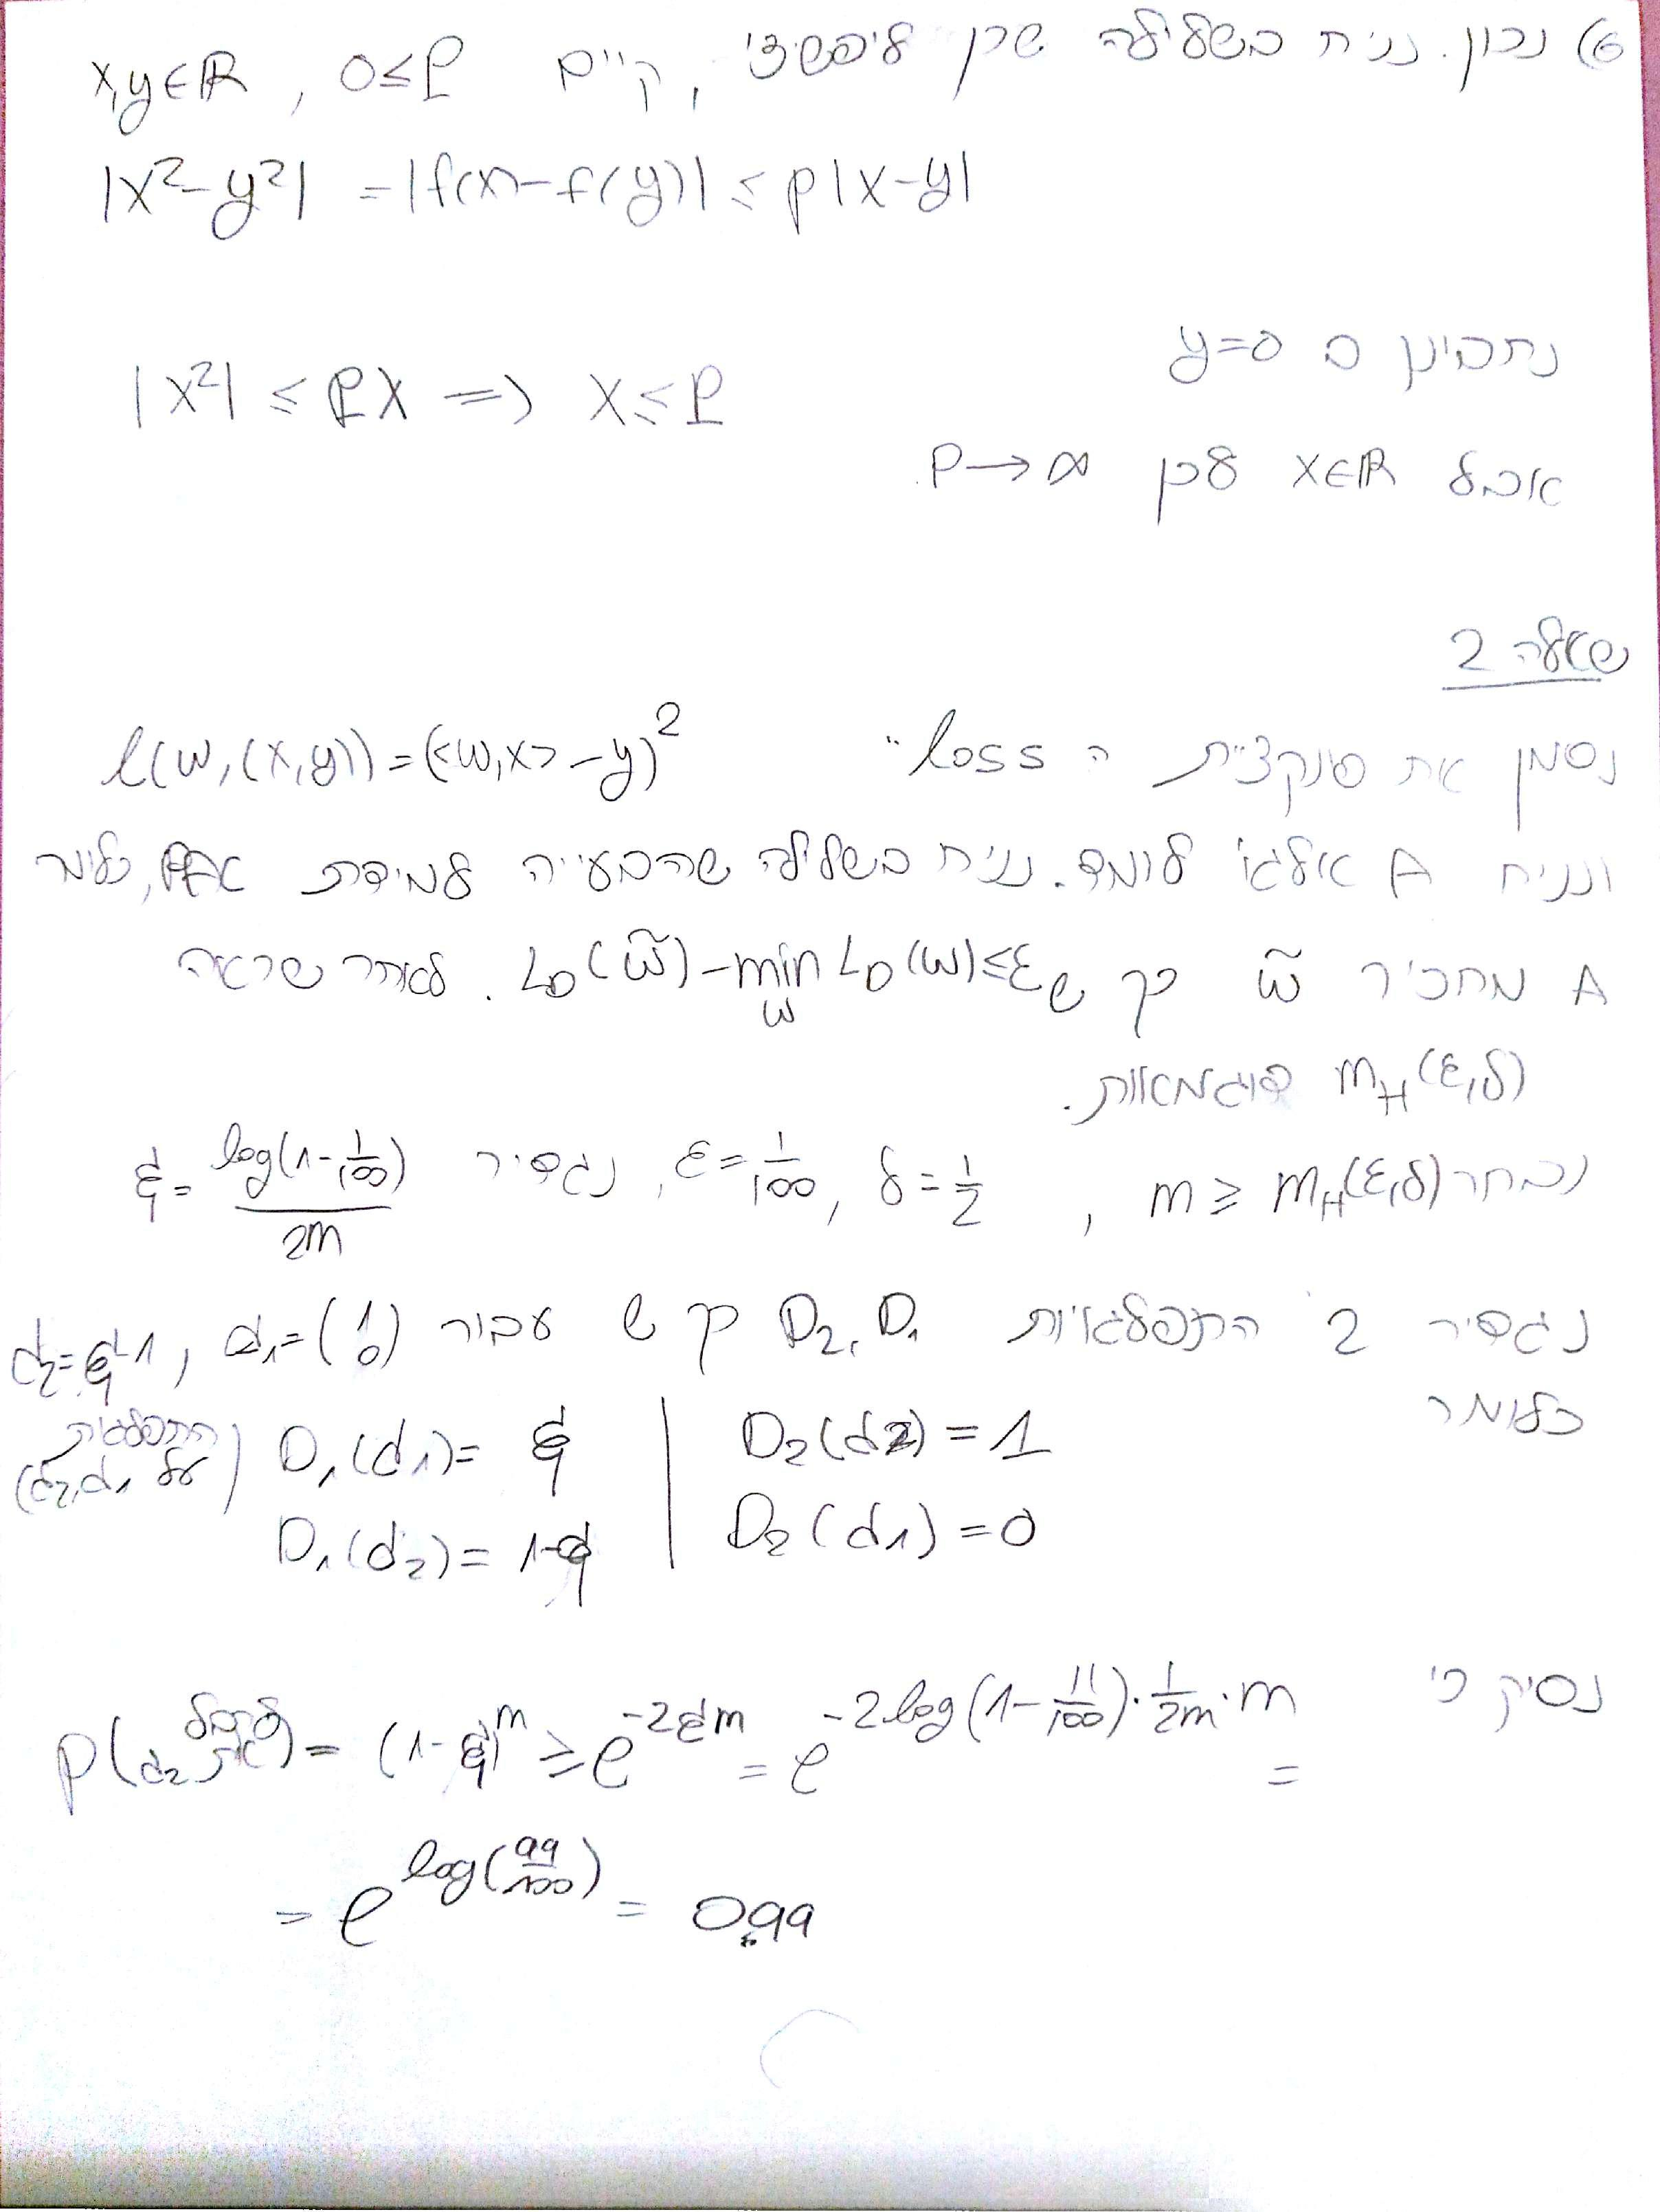 6) נכון. נניח בשלילה שכן ליפשיצי, קיים 0≤ρ , x,y∈ℝ
|x²-y²| = |f(x)-f(y)| ≤ ρ|x-y|
נתבונן ב y=0
|x²| ≤ ρx ⇒ x≤ρ
אבל x∈ℝ לכן ρ→∞.
שאלה 2
נסמן את פונקציית ה loss" l(w,(x,y))=(<w,x>-y)²
ונניח A אלגו' לומד. נניח בשלילה שהבעייה למידת PAC, כלומר
A מחזיר w̃ כך ש L_D(w̃)-min_w L_D(w)≤ε. לאחר שראה
m_H(ε,δ) דוגמאות.
נבחר m ≥ m_H(ε,δ), δ=1/2, ε=1/100, נגדיר = log(1-1/100)/2m
נגדיר 2 התפלגויות D₂,D₁ כך ש עבור d₁=(1 0), d₂=
כלומר
D₁(d₁)= | D₂(d₂)=1 (התפלגות על d₂,d₁)
D₁(d₂)= 1- | D₂(d₁)=0
נסיק כי
= e^(log(99/100)) = 0.99